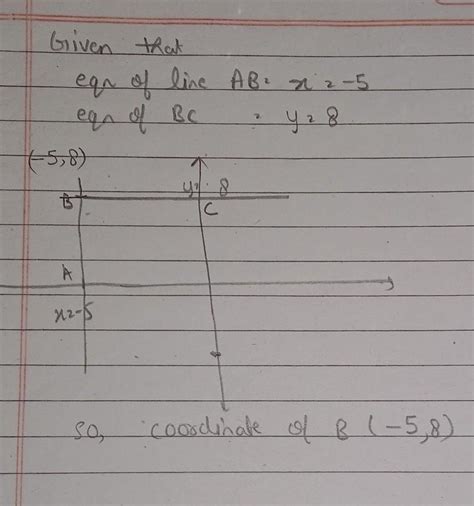 Given that
eqn of line AB = x = -5
eqn of BC = y = 8
(-5,8)
y = 8
B
C
A
x = -5
so, coordinate of B (-5,8)